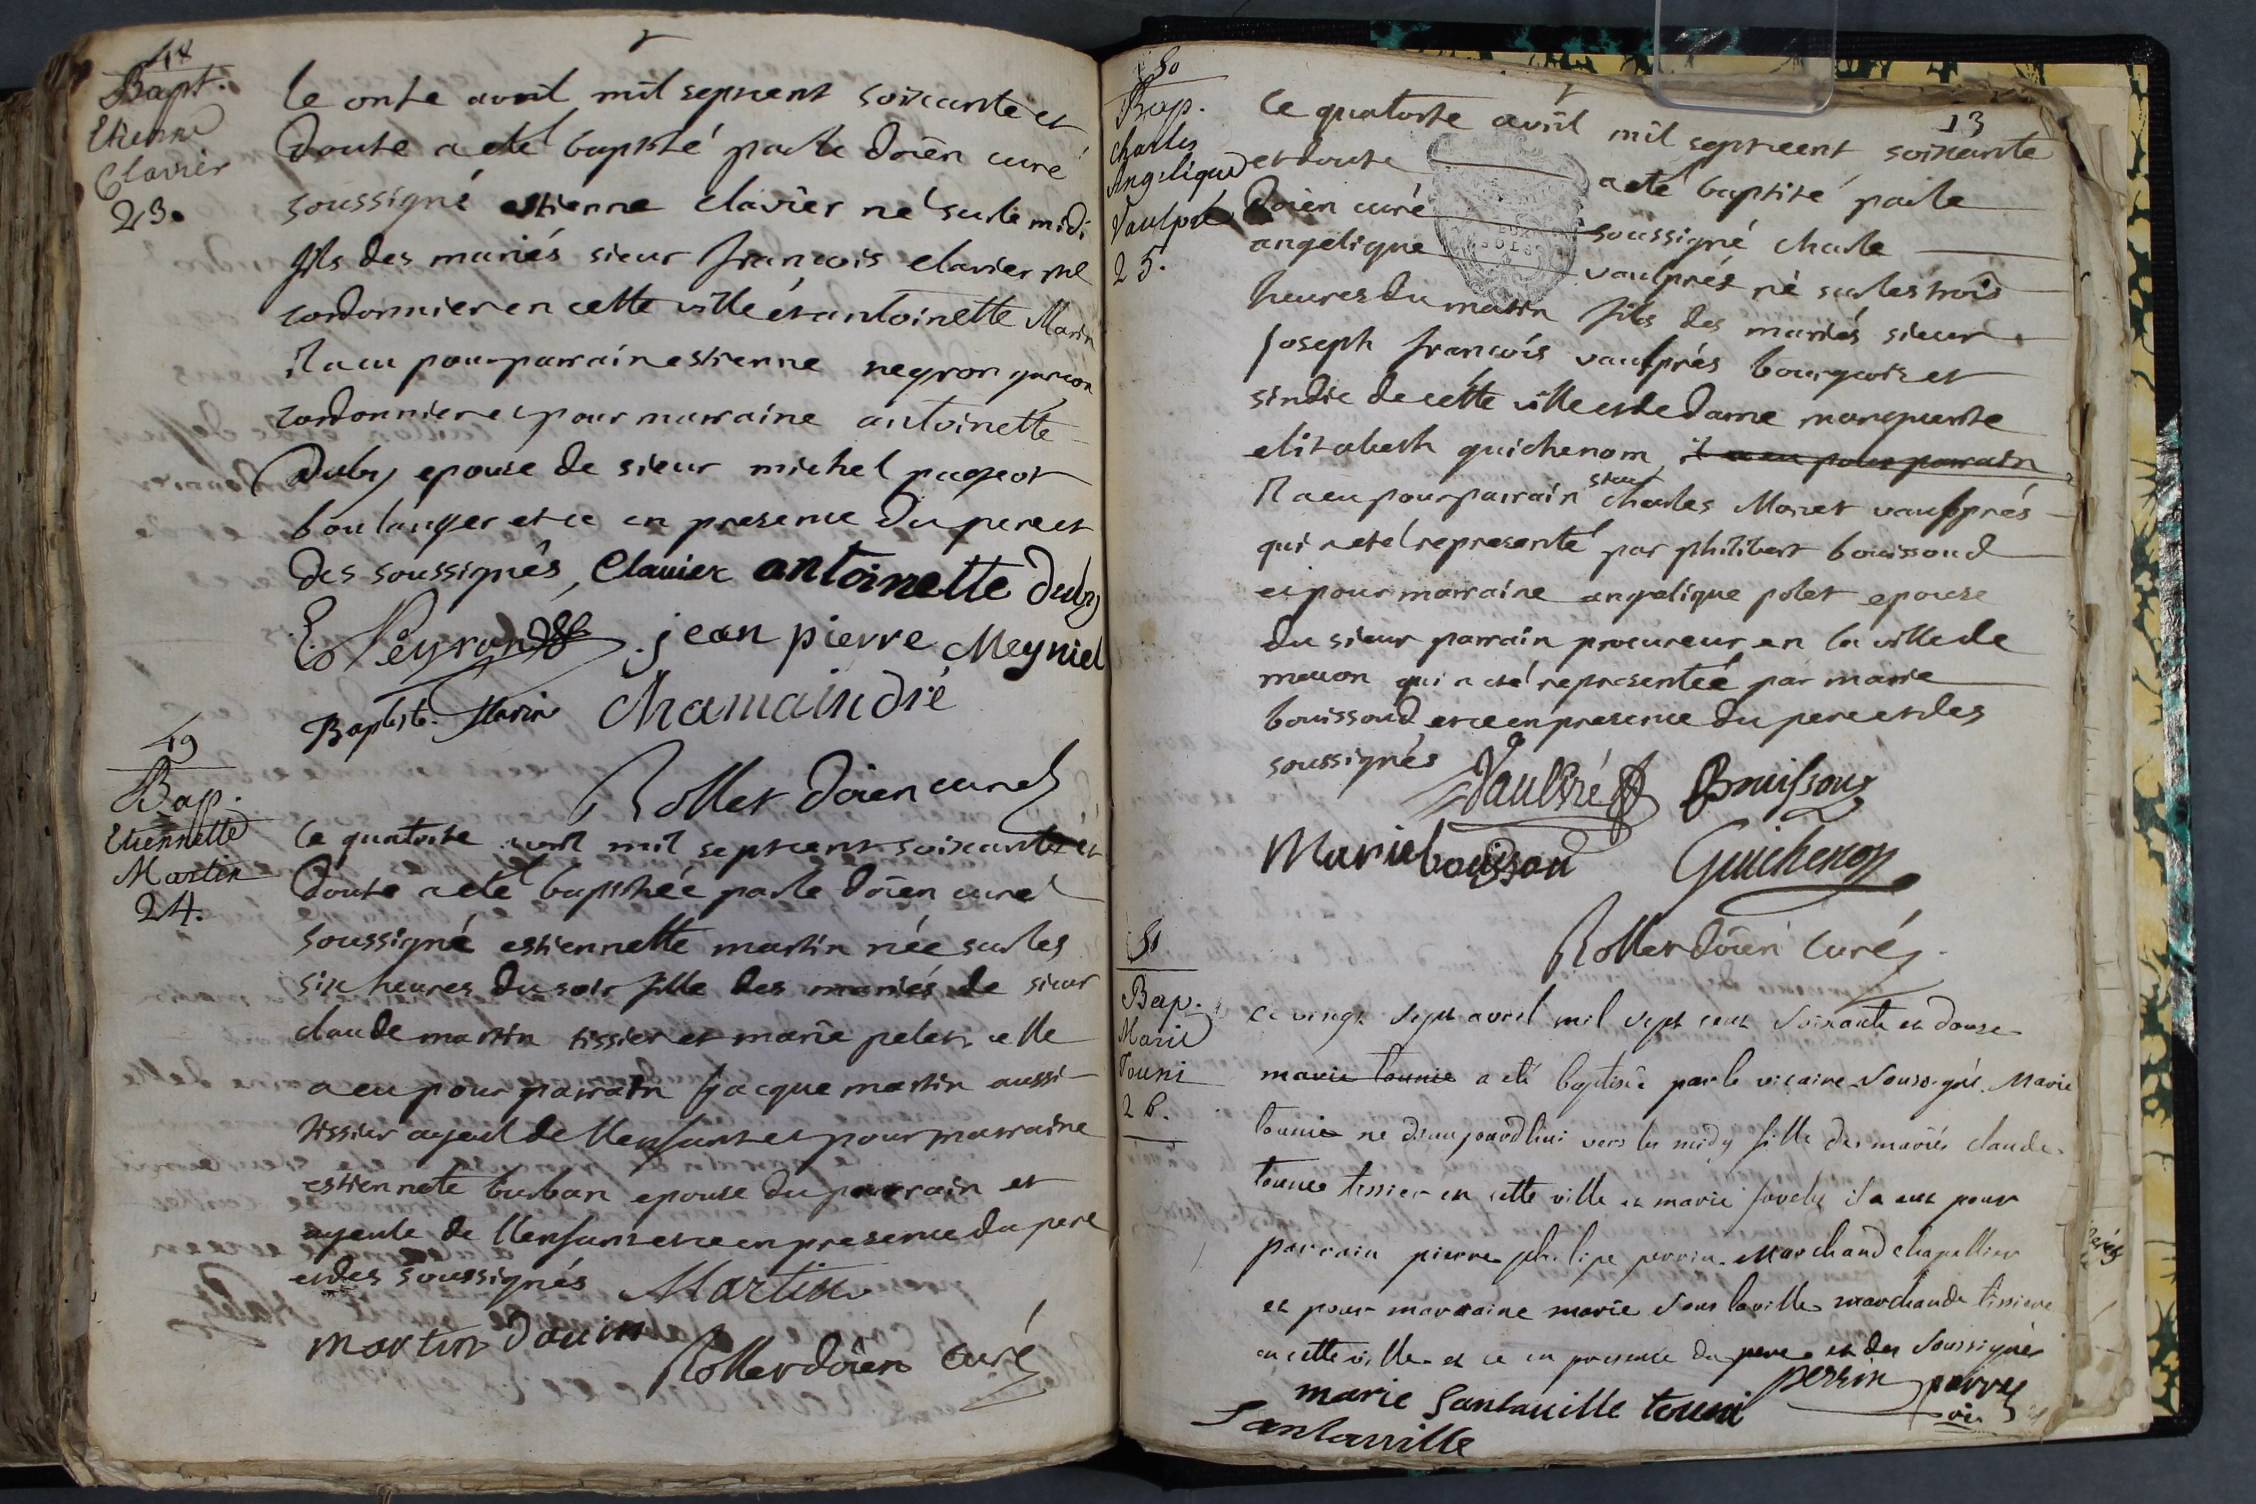 48
Bapt.
Etienne
Clavier
23.
le onse avril mil septcent soixante et
douse a eté baptisé par le doïen curé
soussigné estienne clavier né sur le midi
fils des mariés sieur francois clavier me
cordonnier en cette ville et antoinette Marin
il a eu pour parrain estienne neyron garcon
cordonnier et pour marraine antoinette
Duby epouse de sieur michel pageot
boulanger et ce en presence du pere et
des soussignés, Clavier antoinette duby
E Neyron jean pierre Meyniel
Baptiste Marin Chamaindré
Rollet doïen curé
49
Bap.
Etiennette
Martin
24.
le quatorse avril mil septcent soixante et
douse a eté baptisée par le doïen curé
soussigné estiennette martin née sur les
six heures du soir fille des mariés de sieur
claude martin tissier et marie pelet, elle
a eu pour parrain jacque martin aussi
tissier ayeul de l'enfant et pour marraine
estiennete burban epouse du parrain et
ayeule de l'enfant et ce en presence du pere
et des soussignés Martin
martin dauin
Rollet doïen curé
13
50
Bap.
charles
Angelique
Vaulpré
25.
le quatorse avril mil septcent soixante
et douse a eté baptisé par le
doïen curé soussigné charle
angelique vaulprés né sur les trois
heures du matin fils des mariés sieur
joseph francois vaulprés bourgeois et
sindic de cette ville et de dame marguerite
elisabeth guichenom, il a eu pour parrain
il a eu pour parrain sieur charles Monet vaulprés
qui a eté representé par philibert bouissoud
et pour marraine angelique polet epouse
du sieur parrain procureur en la ville de
macon qui a eté representée par marie
bouissoud et ce en presence du pere et des
soussignés
Vaulpré Bouissoud
Marie bouisson Guichenon
Rollet doïen curé.
51
Bap.
Marie
Touni
26.
Ce vingt sept avril mil sept cent soixante et douse
marie tounie a eté baptisée par le vicaire soussigné Marie
tounie ne d'aujourdhui vers les midy fille des mariés claude
tounie tissier en cette ville et marie il a eut pour
parrain pierre philipe perrin Marchand chapellier
et pour marraine marie marchande tissiere
en cette ville et ce en presence du pere et des soussignés
perrin
marie Santauille touni
vic.
Santauille